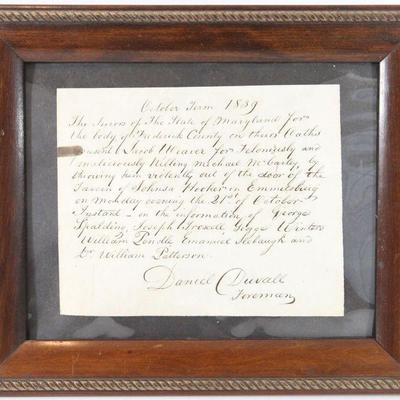 October Term 1839
The Jurors of The State of Maryland for
the body of Frederick County on their Oaths
present Jacob Weaver for Feloniously and
maliciously Killing Michael McCarty, by
throwing him violently out of the door of the
Tavern of Johnsa Hooker in Emmitsburg
on Monday evening the 21st of October
Instant – on the information of George
Spalding, Joseph Troxell, Winter
William Emanuel and
Dr. William Patterson.
Daniel Duvall
Foreman